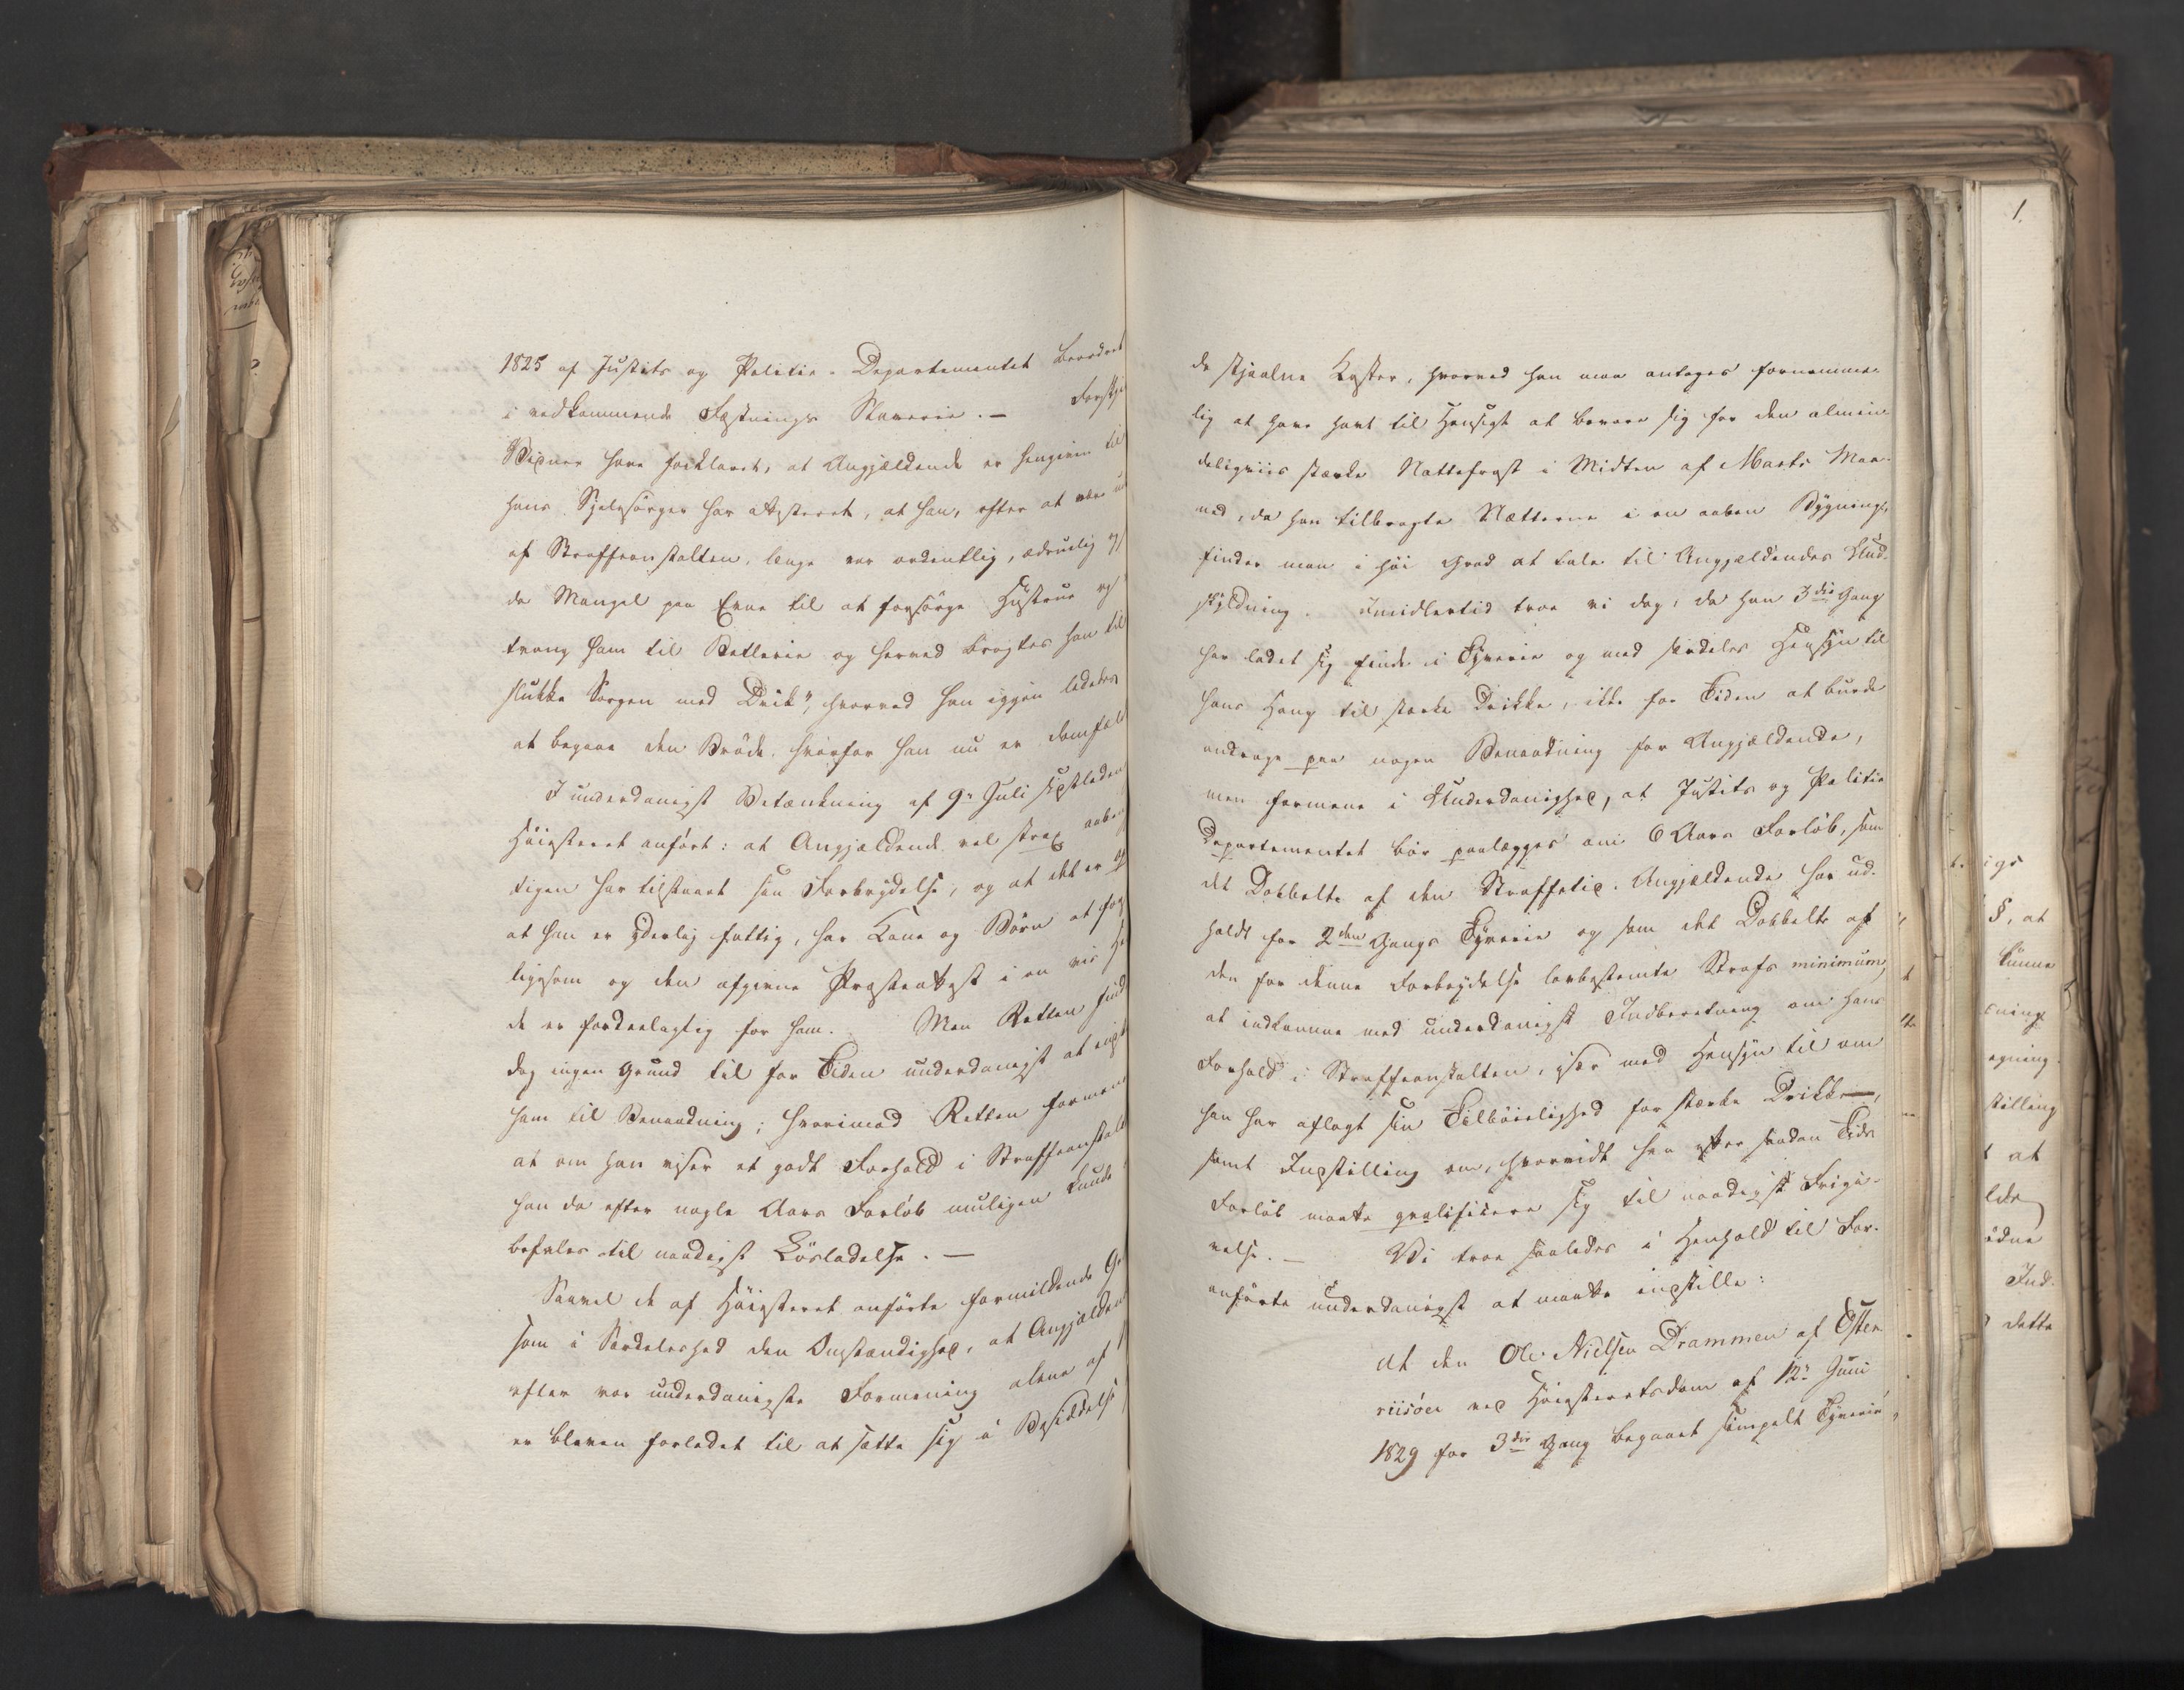 1825 af Justits og Politie-Departementet beordret
i vedkommende Fæstnings Slaverie. — Forskje
Vidner have forklaret, at Angjældende er hengiven til
hans Sjelesørger har attesteret, at han, efter at være ud
af Straffeanstalten, længe var ordentlig, ædruelig og
da Mangel paa Evne til at forsørge Hustrue og
tvang ham til Betlerie og herved bragtes han til
slukke Sorgen med Drik", hvorved han igjen lededes
at begaae den Brøde, hvorfor han nu er domfæld
I underdanigst Betænkning af 9de Juli sidstleden
Høiesteret anført: at Angjældende vel strax aaben
tigen har tilstaaet sin Forbrydelse, og at det er op
at han er yderlig fattig, har Kone og Børn at for
ligesom og den afgivne Præsteattest i en vis He
de er fordeelagtig for ham. Men Retten find
dog ingen Grund til for Tiden underdanigst at inst
ham til Benaadning; hvorimod Retten formene
at om han viser et godt Forhold i Straffeanstalt
han da efter nogle Aars Forløb muligen kunde
befales til naadigst Løsladelse. —
Saavel de af Høiesteret anførte formildende G
som i Særdeleshed den Omstændighed, at Angjælden
efter vor underdanigste Formening alene af
er bleven forledet til at sætte sig i Besiddelse
de stjaalne Koster, hvorved han maa antages fornemme-
lig at have havt til Hensigt at bevare sig for den almin
deligviis stærke Nattefrost i Midten af Marts Maa-
ned, da han tilbragte Nætterne i en aaben Bygning,
finder man i høi Grad at tale til Angjældendes Und-
skyldning. Imidlertid troe vi dog, da han 3die Gang
har ladet sig finde i Tyverie og med særdeles Hensyn til
hans Hang til stærke Drikke, ikke for Tiden at burde
andrage paa nogen Benaadning for Angjældende,
men formene i Underdanighed, at Justits og Politie
Departementet bør paalægges om 6 Aars Forløb, som
det Dobbelte af den Straffetid Angjældende har ud-
holdt for 2den Gangs Tyverie og som det Dobbelte af
den for denne Forbrydelse lovbestemte Strafs minimum,
at indkomme med underdanigst Indberetning om hans
Forhold i Straffeanstalten, især med Hensyn til om
han har aflagt sin Tilbøielighed for stærke Drikke,
samt Indstilling om, hvorvidt han efter saadan Tids
Forløb maatte qvalificere sig til naadigst Frigi-
velse. — Vi troe saaledes i Henhold til For-
anførte underdanigst at maatte indstille:
At den Ole Nielsen Drammen af Öster
riisöer ved Høiesteretsdom af 12te Juni
1829 for 3die Gang begaaet simpelt Tyverie,
1.
igs
§, at
kunne
sning
egning.
stilling
at
lde
ödne
Ind-
dette